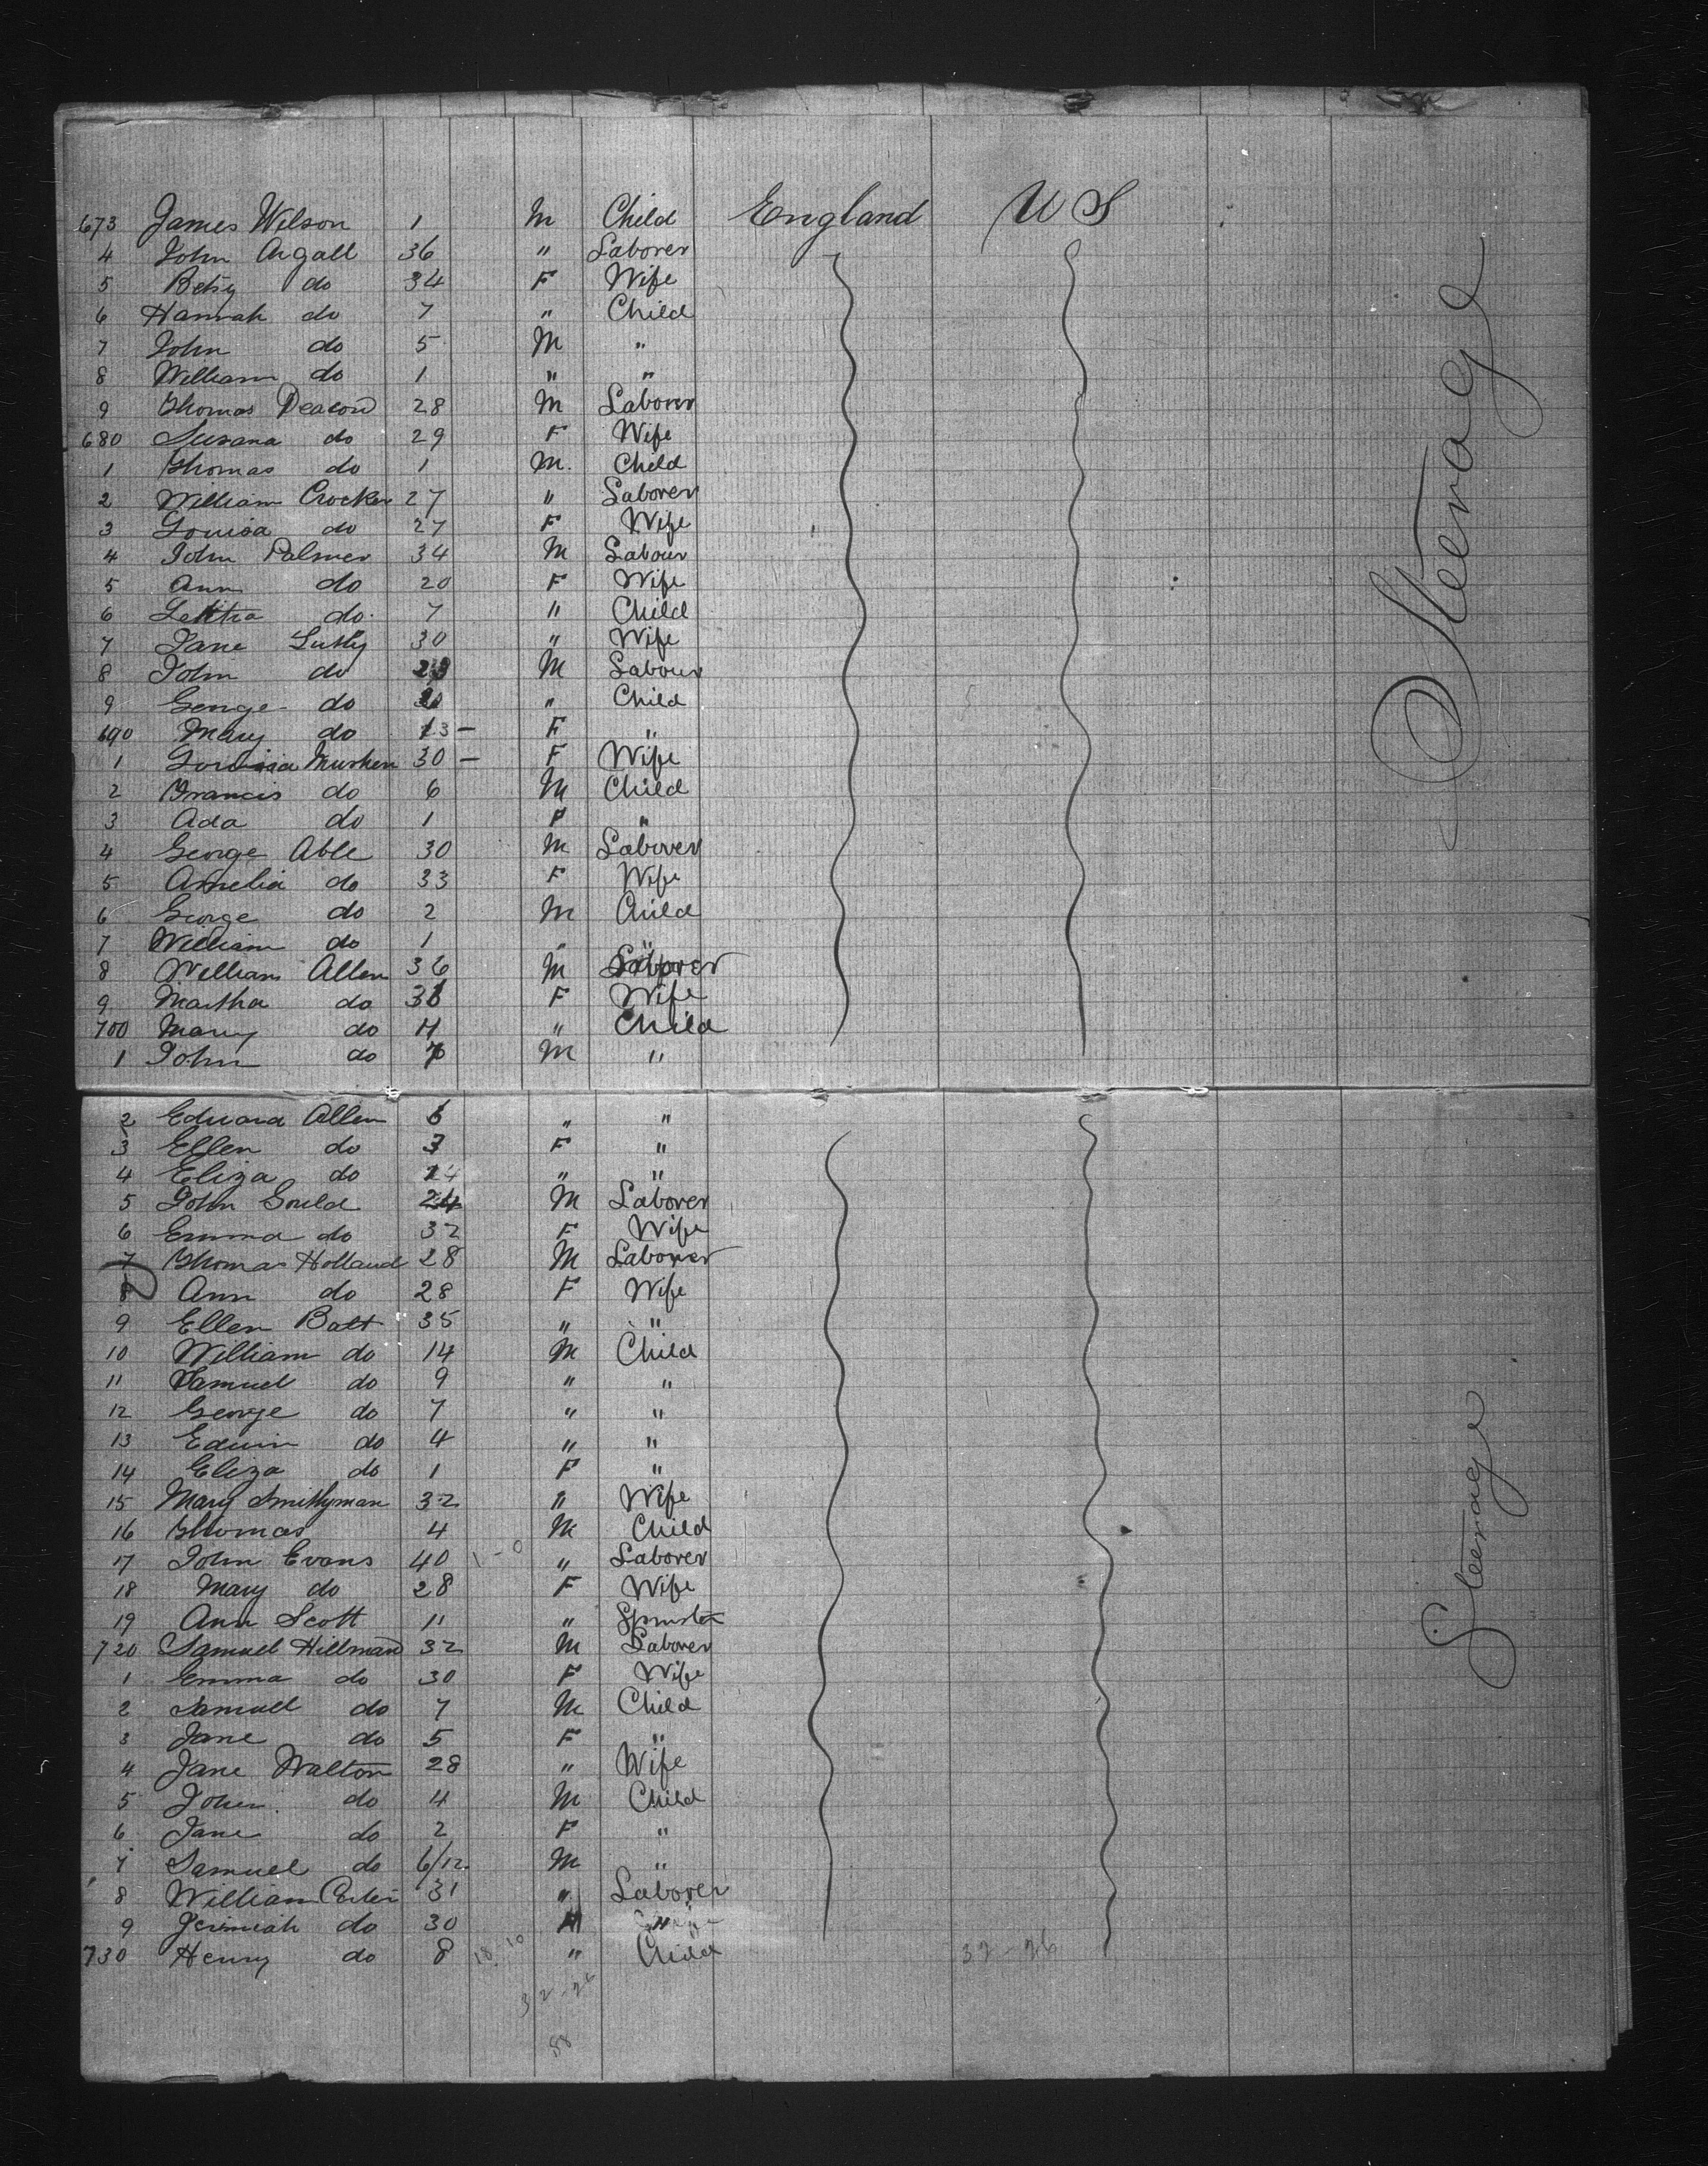 673 James Wilson 1 M Child England U S
4 John Argall 36 " Laborer
5 Betsy do 34 F Wife
6 Hannah do 7 " Child
7 John do 5 M "
8 William do 1 " "
9 Thomas Deacon 28 M Laborer
680 Susana do 29 F Wife
1 Thomas do 1 M. Child
2 William Crocker 27 " Laborer
3 Louisa do 27 F Wife
4 John Palmer 34 M Labour
5 Ann do 20 F Wife
6 do. 7 " Child
7 Jane 30 " Wife
8 John do M Labour
9 George do " Child
690 Mary do 13 – F "
1 Louisa 30 – F Wife
2 Francis do 6 M Child
3 Ada do 1 F "
4 George Able 30 M Laborer
5 Amelia do 33 F Wife
6 George do 2 M Child
7 William do 1 " "
8 William Allen 36 M Laborer
9 Martha do F Wife
700 Mary do 11 " Child
1 John do M "
2 Edward Allen 6 " "
3 Ellen do 3 F "
4 Eliza do " "
5 John Gould 24 M Laborer
6 Emma do 32 F Wife
7 Thomas Holland 28 M Laborer
8 Ann do 28 F Wife
9 Ellen Batt 35 " "
10 William do 14 M Child
11 Samuel do 9 " "
12 George do 7 " "
13 Edwin do 4 " "
14 Eliza do 1 F "
15 Mary Smithyman 32 " Wife
16 Thomas 4 M Child
17 John Evans 40 1-0 " Laborer
18 Mary do 28 F Wife
19 Ann Scott 11 " Spinster
720 Samuel Hillman 32 M Laborer
1 Emma do 30 F Wife
2 Samuel do 7 M Child
3 Jane do 5 F "
4 Jane Walton 28 " Wife
5 John do 4 M Child
6 Jane do 2 F "
7 Samuel do 6/12 M "
8 William 31 " Laborer
9 Jerimiah do 30 M "
730 Henry do 8 18.10 " Child 32-26
32-26
88
Steerage
Steerage